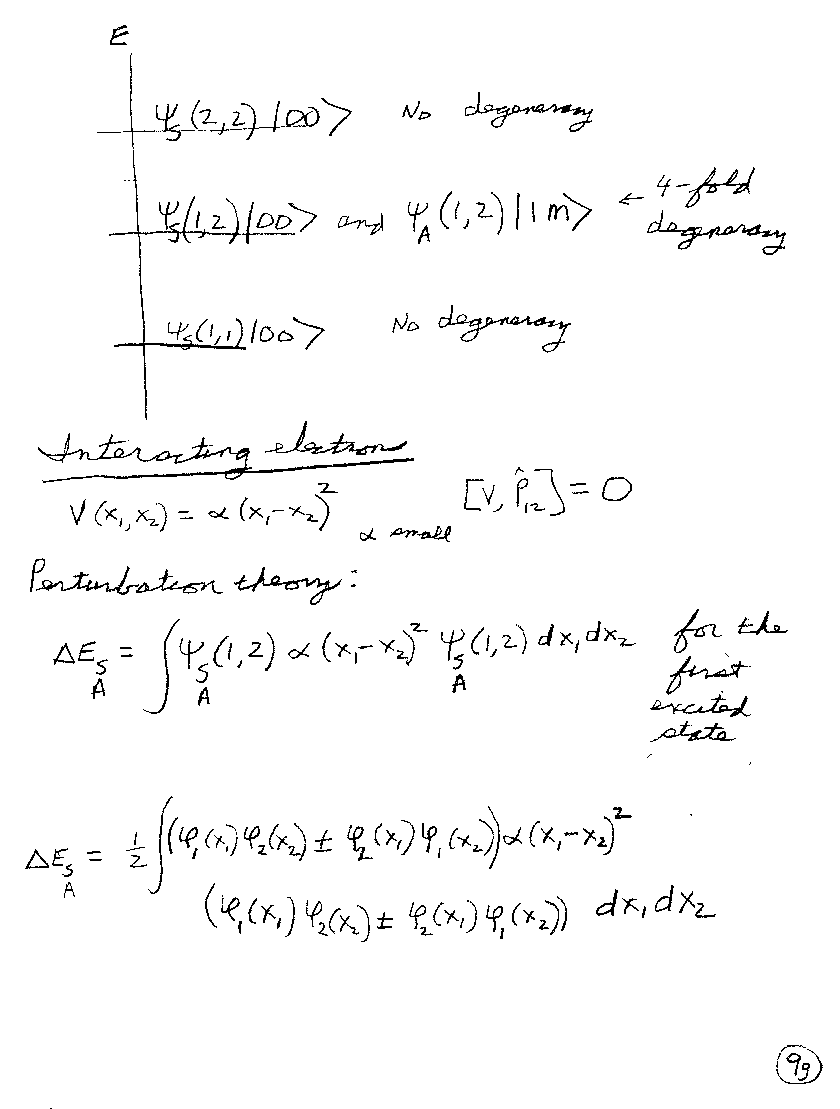 E
ψ_S(2,2)|00⟩ No degeneracy
ψ_S(1,2)|00⟩ and ψ_A(1,2)|1m⟩ ← 4-fold degeneracy
ψ_S(1,1)|00⟩ No degeneracy
Interacting electrons
V(x₁,x₂) = α(x₁-x₂)² α small [V, P̂₁₂] = 0
Perturbation theory:
ΔE_S/A = ∫ψ_S/A(1,2) α(x₁-x₂)² ψ_S/A(1,2) dx₁dx₂ for the first excited state
ΔE_S/A = 1/2 ∫(φ₁(x₁)φ₂(x₂) ± φ₂(x₁)φ₁(x₂)) α(x₁-x₂)²
(φ₁(x₁)φ₂(x₂) ± φ₂(x₁)φ₁(x₂)) dx₁dx₂
99